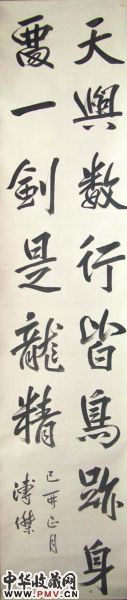 天與数行皆鳥跡身
一劍是龍精
己酉正月
溥傑
中华收藏网
WWW.PMV.CN